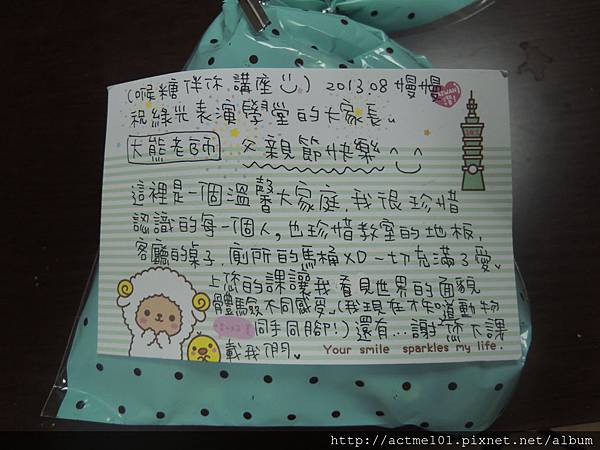 (喉糖伴你講座 ) 2013.08 慢慢
祝綠光表演學堂的大家長。
大熊老師 父親節快樂
這裡是一個溫馨大家庭,我很珍惜
認識的每一個人,也珍惜教室的地板,
客廳的桌子,廁所的馬桶XD 一切充滿了愛。
上您的課讓我看見世界的面貌
體驗不同感受。(我現在才知道動物
同手同腳!) 還有...謝您不課
載我們。
Your smile sparkles my life.
http://actme101.pixnet.net/album